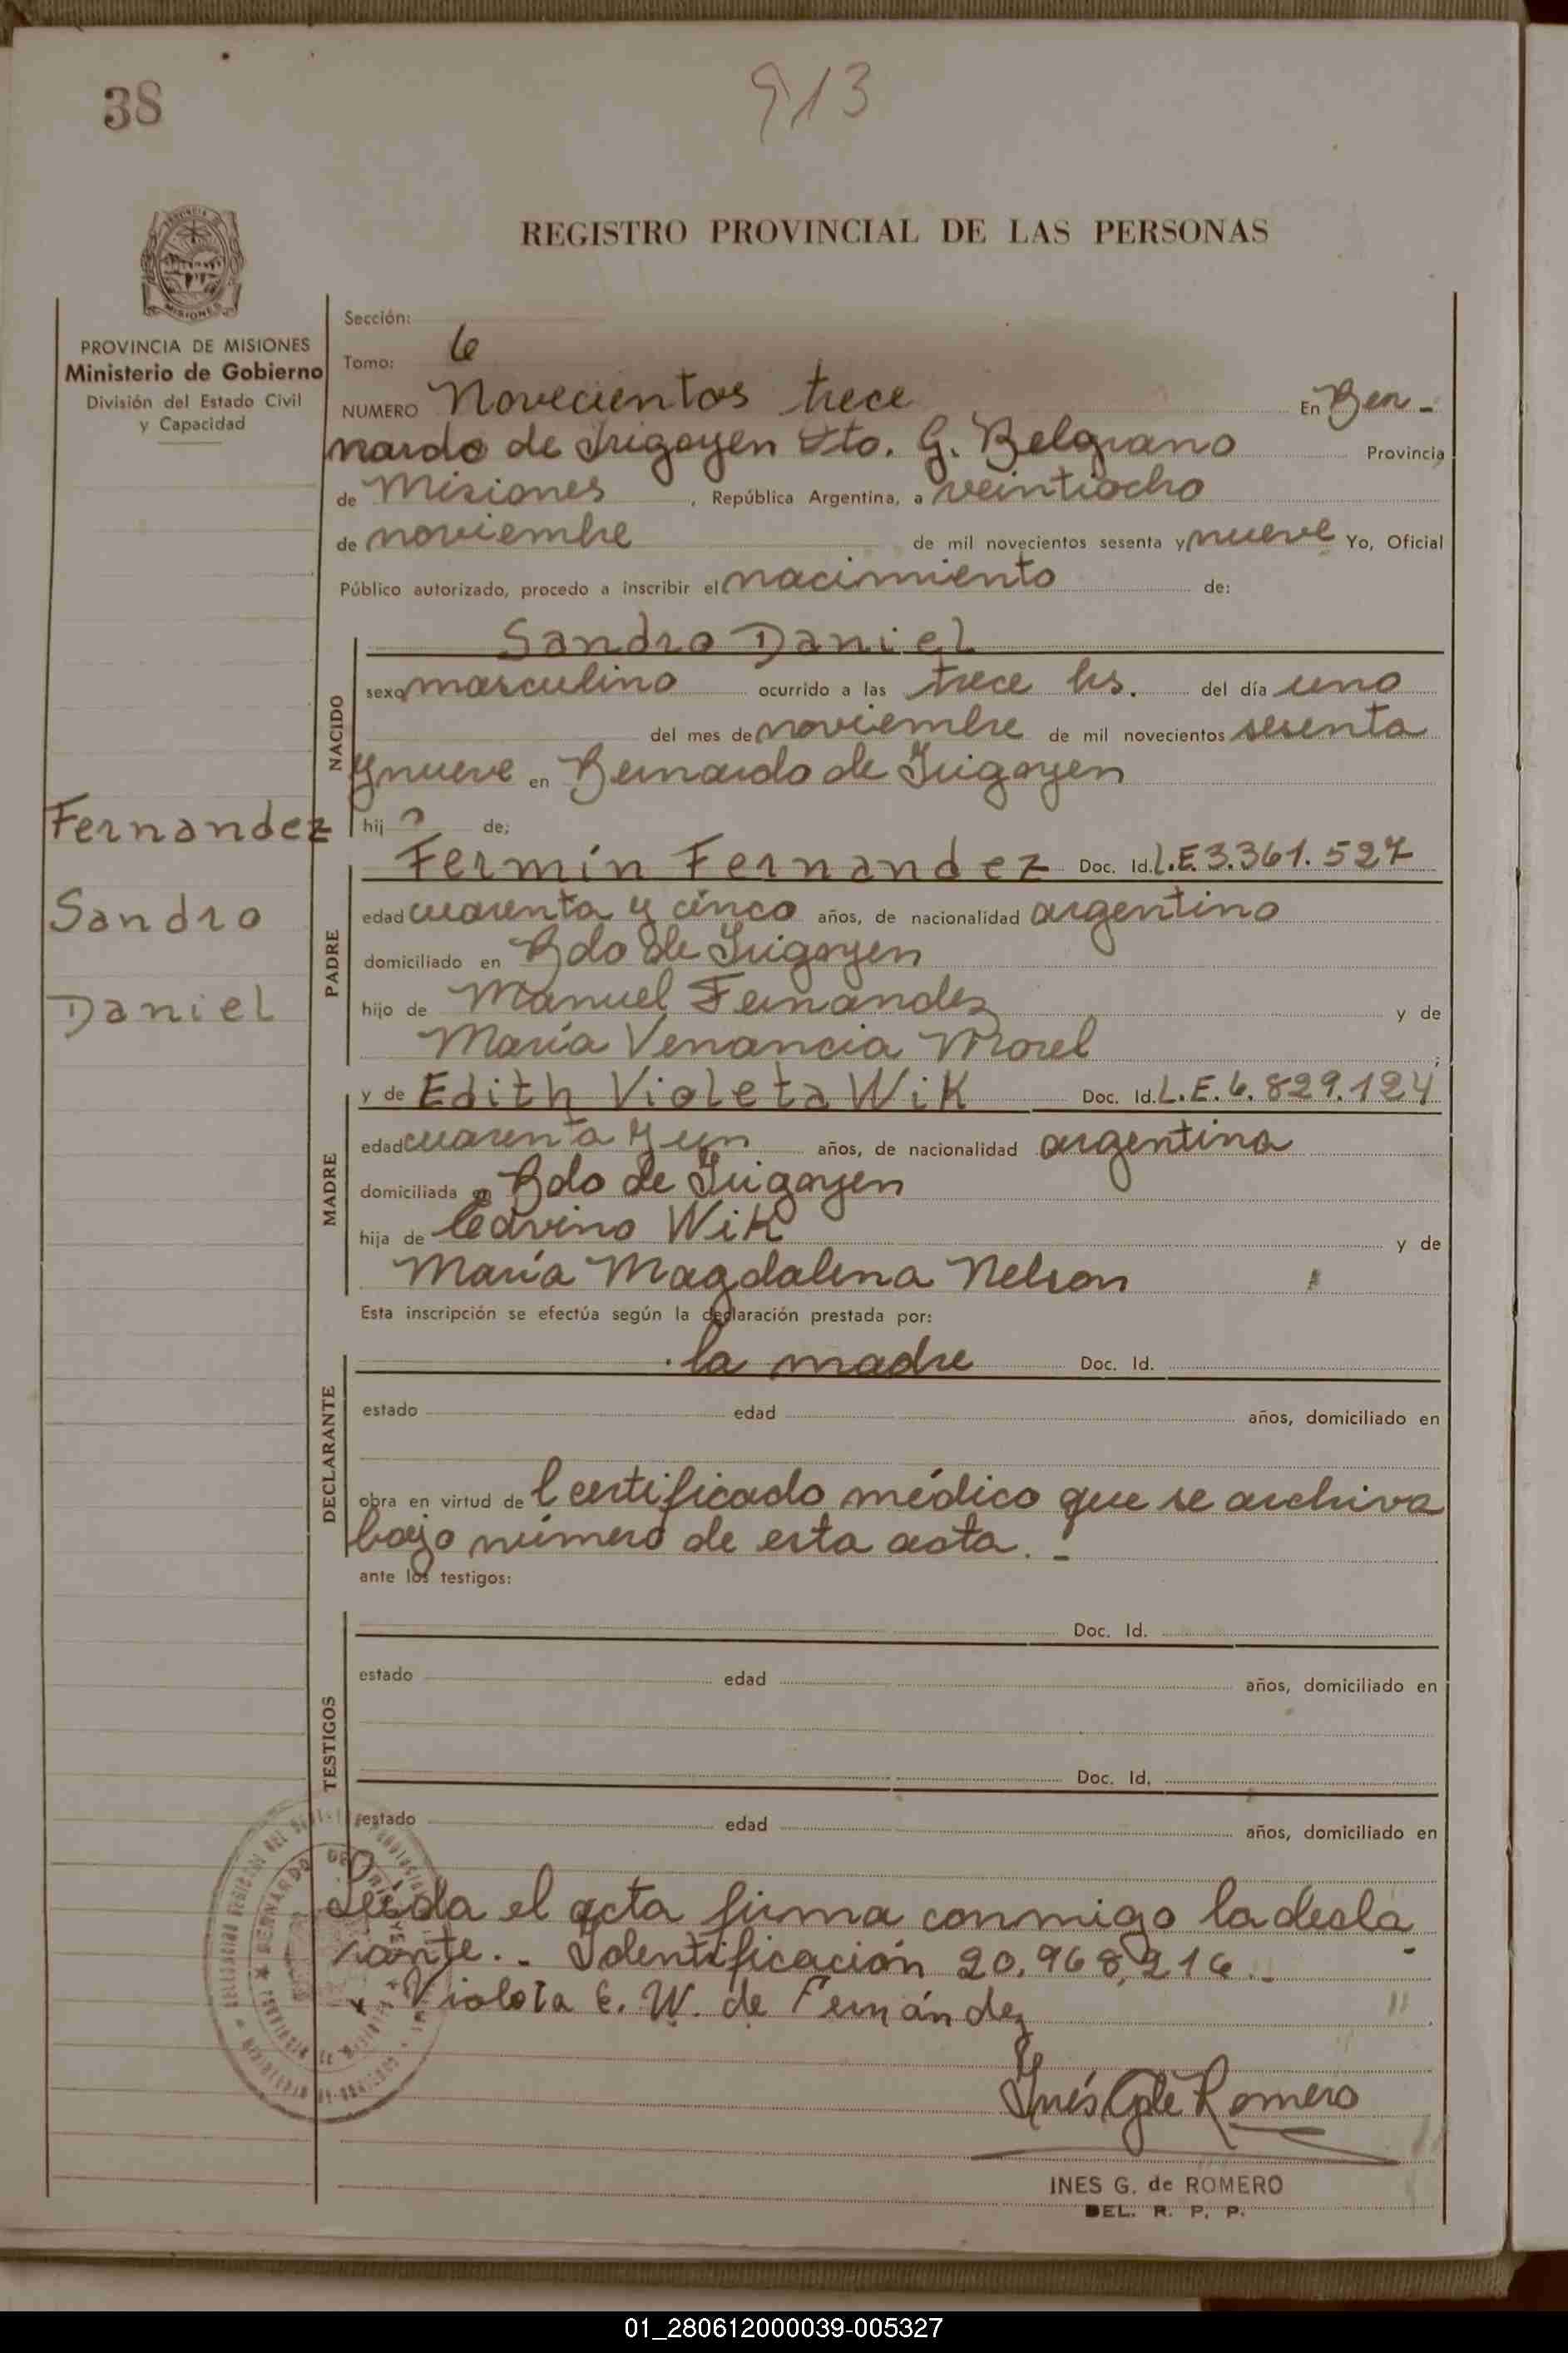 38
913
REGISTRO PROVINCIAL DE LAS PERSONAS
MISIONES
PROVINCIA DE MISIONES
Ministerio de Gobierno
División del Estado Civil
y Capacidad
Sección:
Tomo: 6
NUMERO Novecientos trece En Ber-
nardo de Irigoyen Dto. G. Belgrano Provincia
de Misiones, República Argentina, a veintiocho
de noviembre de mil novecientos sesenta y nueve Yo, Oficial
Público autorizado, procedo a inscribir el nacimiento de:
Sandro Daniel
NACIDO
sexo masculino ocurrido a las trece hs. del día uno
del mes de noviembre de mil novecientos sesenta
y nueve en Bernardo de Irigoyen
hijo de:
Fernandez
Sandro
Daniel
PADRE
Fermín Fernandez Doc. Id. L.E. 3.361.527
edad cuarenta y cinco años, de nacionalidad argentino
domiciliado en Bdo de Irigoyen
hijo de Manuel Fernandez y de
María Venancia Morel ;
MADRE
y de Edith Violeta Wik Doc. Id. L.E. 6.829.124
edad cuarenta y un años, de nacionalidad argentina
domiciliada en Bdo de Irigoyen
hija de Wik y de
María Magdalena Nelson
Esta inscripción se efectúa según la declaración prestada por:
DECLARANTE
la madre Doc. Id.
estado edad años, domiciliado en
obra en virtud del certificado médico que se archiva
bajo número de esta acta. -
ante los testigos:
TESTIGOS
Doc. Id.
estado edad años, domiciliado en
Doc. Id.
estado edad años, domiciliado en
Leída el acta firma conmigo la decla
rante. - Identificación 20.968.216. -
Violeta E. W. de Fernández
Inés G de Romero
INES G. de ROMERO
DEL. R. P. P.
01_280612000039-005327